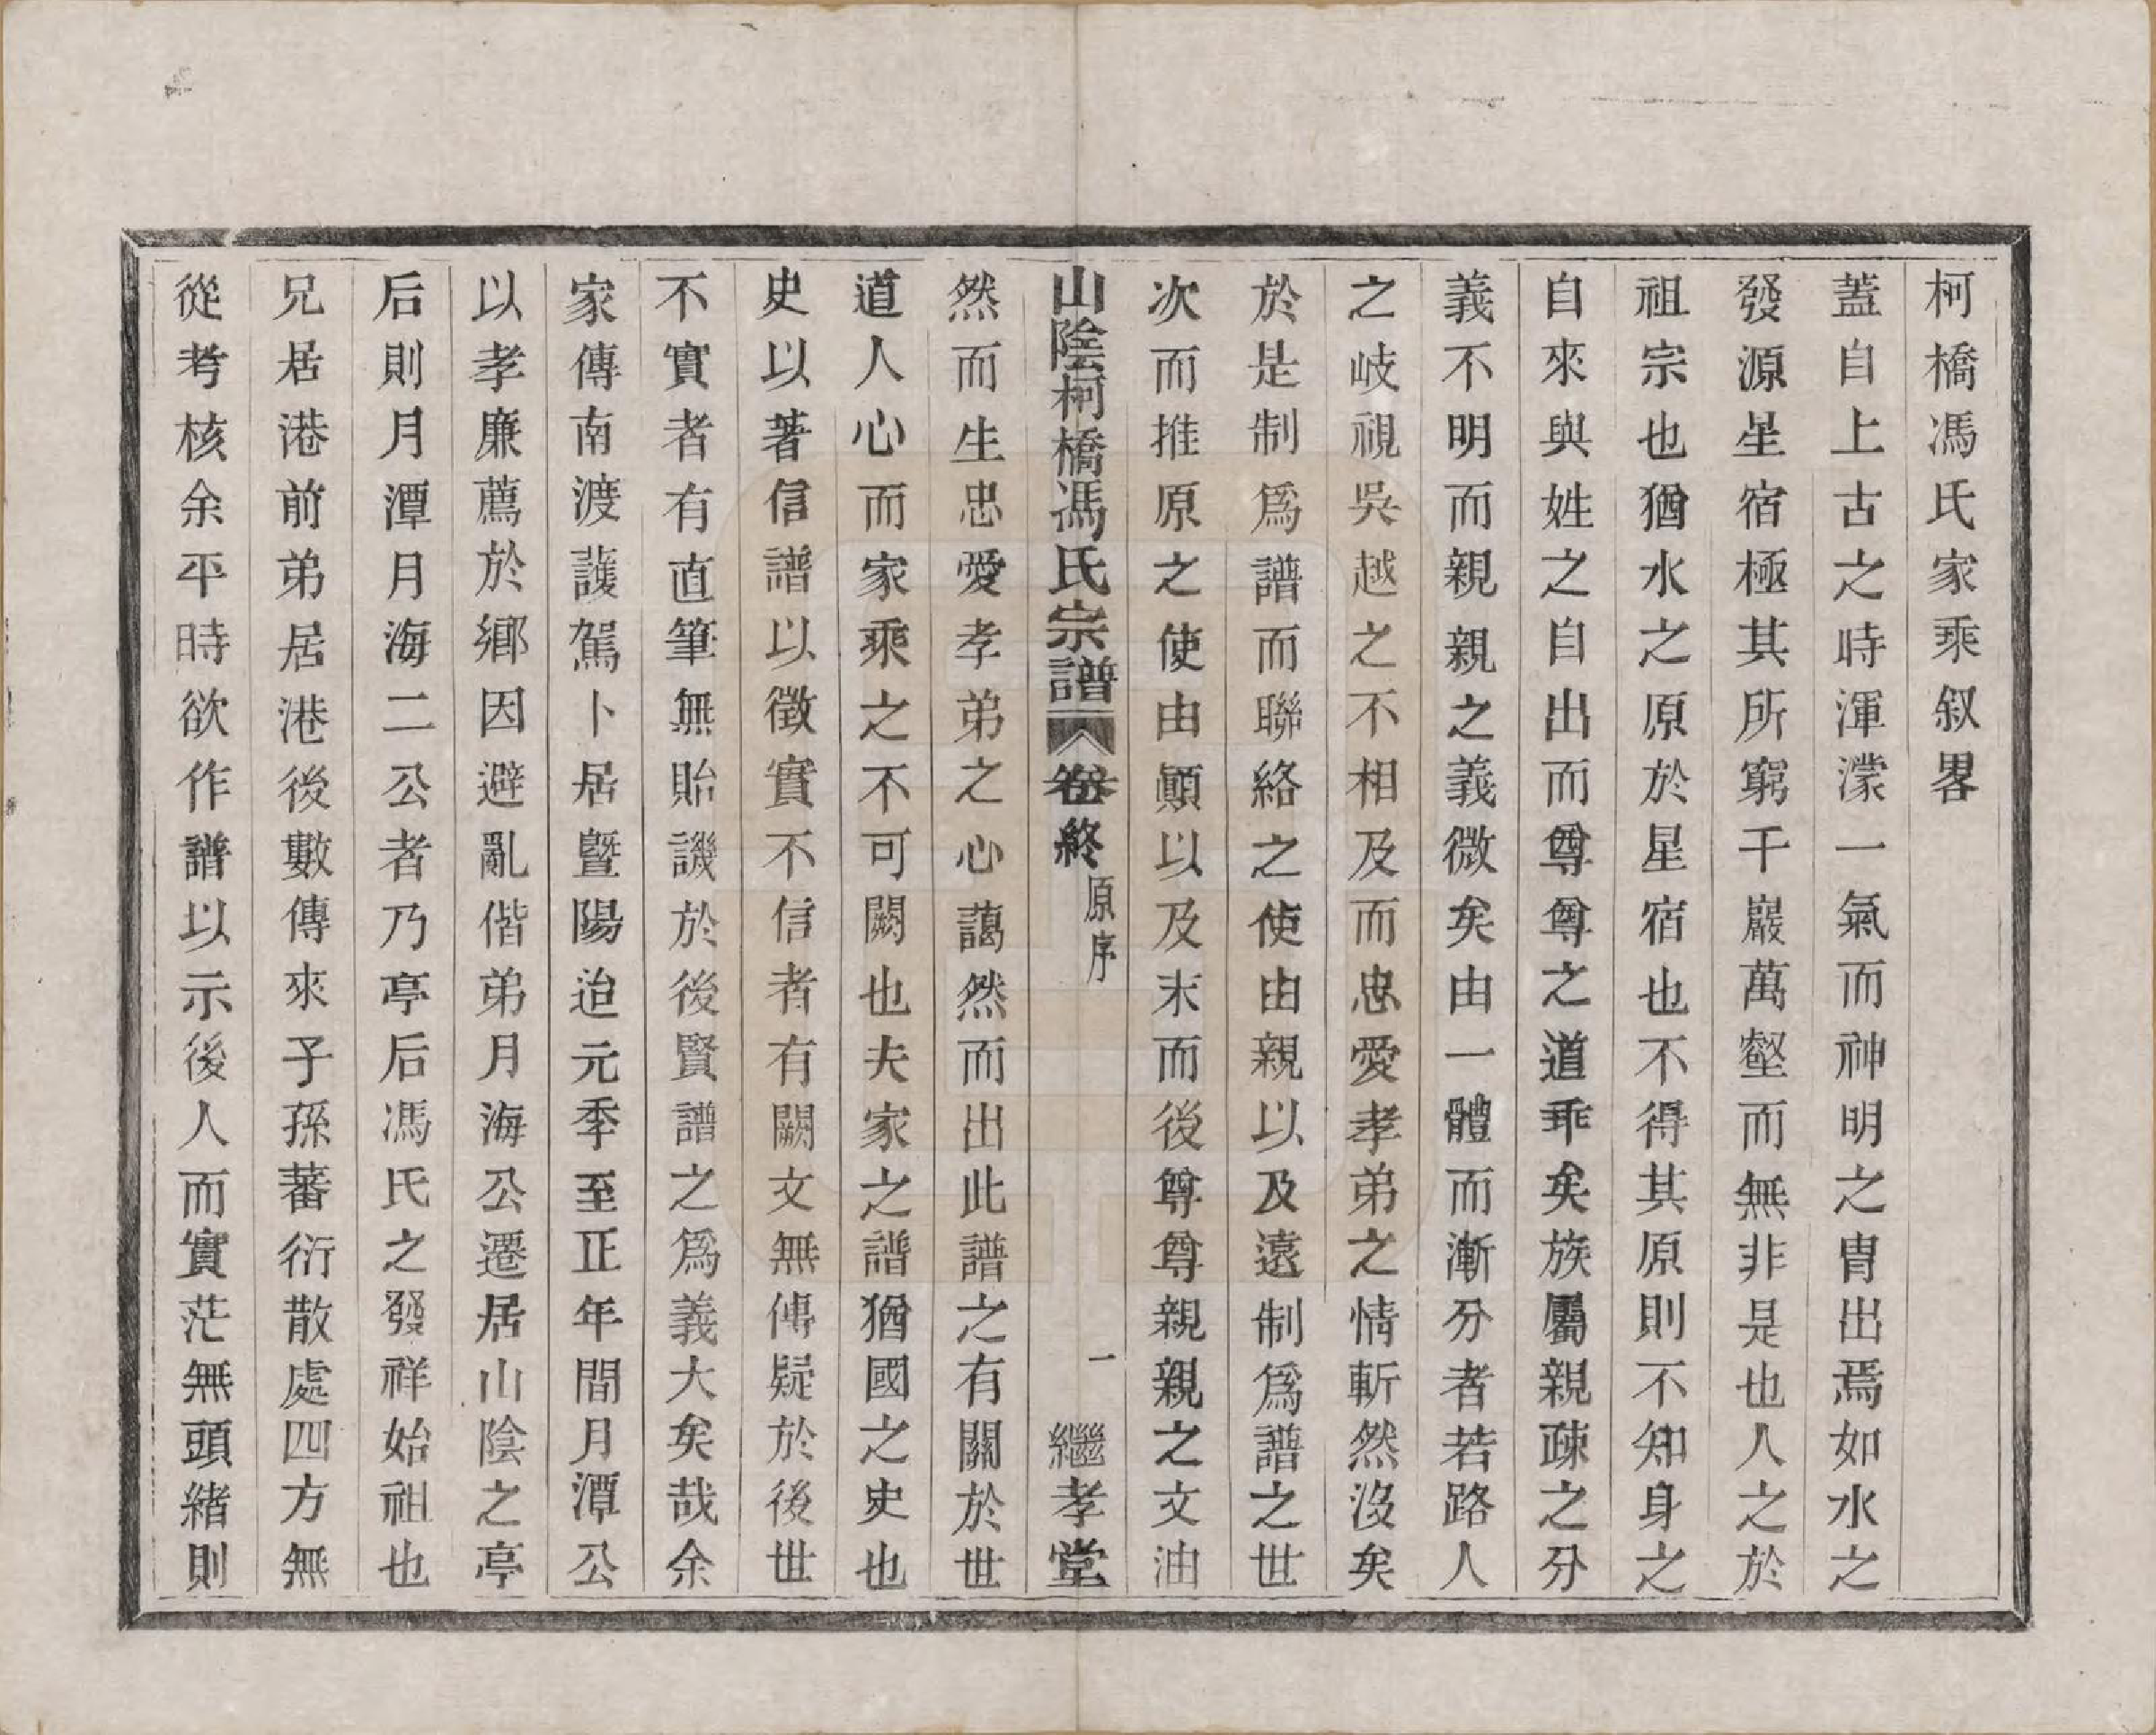 柯橋馮氏家乘叙畧
蓋自上古之時渾濛一氣而神明之胄出焉如水之
發源星宿極其所窮千巖萬壑而無非是也人之於
祖宗也猶水之原於星宿也不得其原則不知身之
自來與姓之自出而尊尊之道乖矣族屬親疎之分
義不明而親親之義微矣由一體而漸分者若路人
之岐視吳越之不相及而忠愛孝弟之情斬然沒矣
於是制爲譜而聯絡之使由親以及遠制爲譜之世
次而推原之使由顚以及末而後尊尊親親之文油
山陰柯橋馮氏宗譜
卷終
原序
一
繼孝堂
然而生忠愛孝弟之心藹然而出此譜之有關於世
道人心而家乘之不可闕也夫家之譜猶國之史也
史以著信譜以徵實不信者有闕文無傳疑於後世
不實者有直筆無貽譏於後賢譜之爲義大矣哉余
家傳南渡護駕卜居暨陽迨元季至正年間月潭公
以孝廉薦於鄉因避亂偕弟月海公遷居山陰之亭
后則月潭月海二公者乃亭后馮氏之發祥始祖也
兄居港前弟居港後數傳來子孫蕃衍散處四方無
從考核余平時欲作譜以示後人而實茫無頭緒則